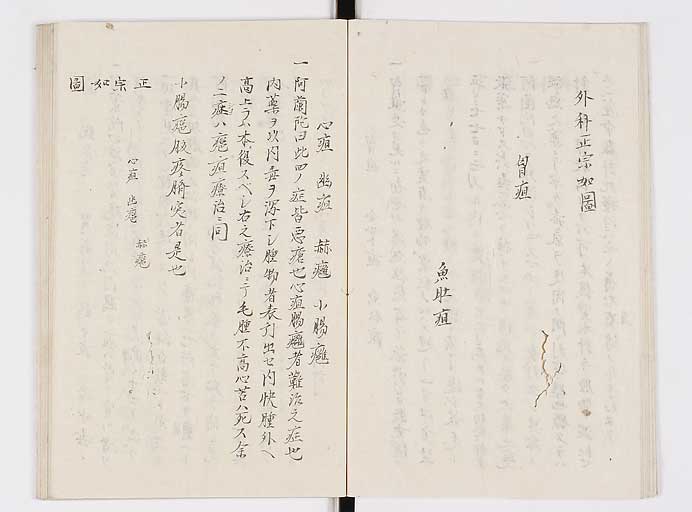 外科正宗如圖
胃疽
魚肚疽
心疽 幽疽 赫癰 小腸癰
一阿蘭陀曰此四ノ症皆悪瘡也心疽腸癰者難治之症也
内薬ヲ以内毒ヲ瀉下シ腫物者表引出セハ内快腫外ヘ
高上ラハ本復スベシ右之療治ニテ毛腫不高心苦ハ死ス余
ノ二症ハ癰疽療治ニ同
小腸癰腹疼臍突者是也
正宗如圖
心疽 幽癰 赫癰